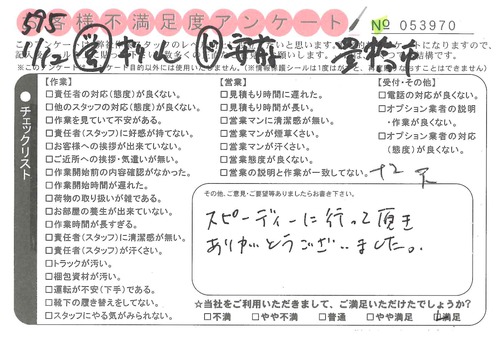 お客様不満足度アンケート
No 053970
595
11/2
営
ド
チェックリスト
【作業】
□責任者の対応(態度)が良くない。
□他のスタッフの対応(態度)が良くない。
□作業を見ていて不安がある。
□責任者(スタッフ)に好感が持てない。
□お客様への挨拶が出来ていない。
□ご近所への挨拶・気遣いが無い。
□作業開始前の内容確認がなかった。
□作業開始時間が遅れた。
□荷物の取り扱いが雑である。
□お部屋の養生が出来ていない。
□作業時間が長すぎる。
□責任者(スタッフ)に清潔感が無い。
□責任者(スタッフ)が汗くさい。
□トラックが汚い。
□梱包資材が汚い。
□運転が不安(下手)である。
□靴下の履き替えをしてない。
□スタッフにやる気がみられない。
【営業】
□見積もり時間に遅れた。
□見積もり時間が長い。
□営業マンに清潔感が無い。
□営業マンが煙草くさい。
□営業マンが汗くさい。
□営業態度が良くない。
□営業の説明と作業が一致してない。
【受付・その他】
□電話の対応が良くない。
□オプション業者の説明
・作業が良くない。
□オプション業者の対応
(態度)が良くない。
その他、ご意見・ご要望等ありましたらお書き下さい。
スピーディーに行って頂き
ありがとうございました。
☆当社をご利用いただきまして、ご満足いただけたでしょうか?
□不満 □やや不満 □普通 □やや満足 □満足